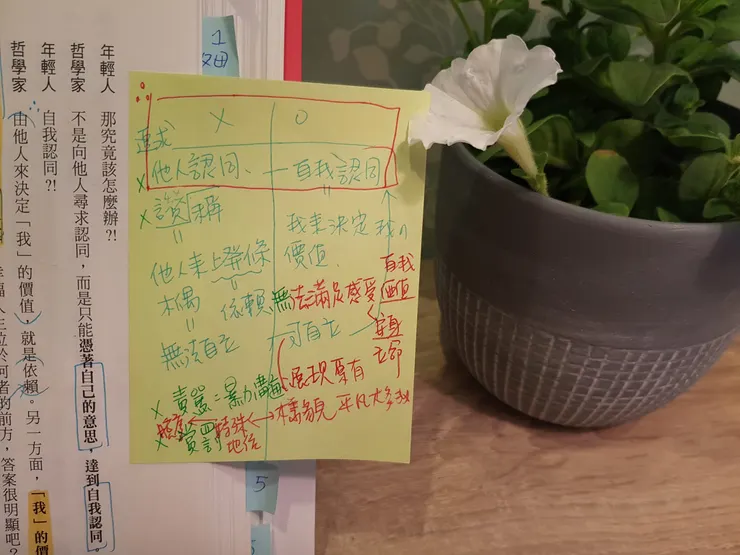 年輕人　那究竟該怎麼辦?!
哲學家　不是向他人尋求認同，而是只能憑著自己的意思，達到自我認同。
年輕人　自我認同?!
哲學家　由他人來決定「我」的價值，就是依賴。另一方面，「我」的價
1
5
X O
追求
X 他人認同、一 自我認同
X 讚稱
我來決定我的
價值.
他人來上發條
木偶
依賴
無法滿足感受
自我
價值
安身
立命
無法自立
可自立
X 責罵=暴力
展現原有
樣貌 平凡
特殊
地位
X 賞罰